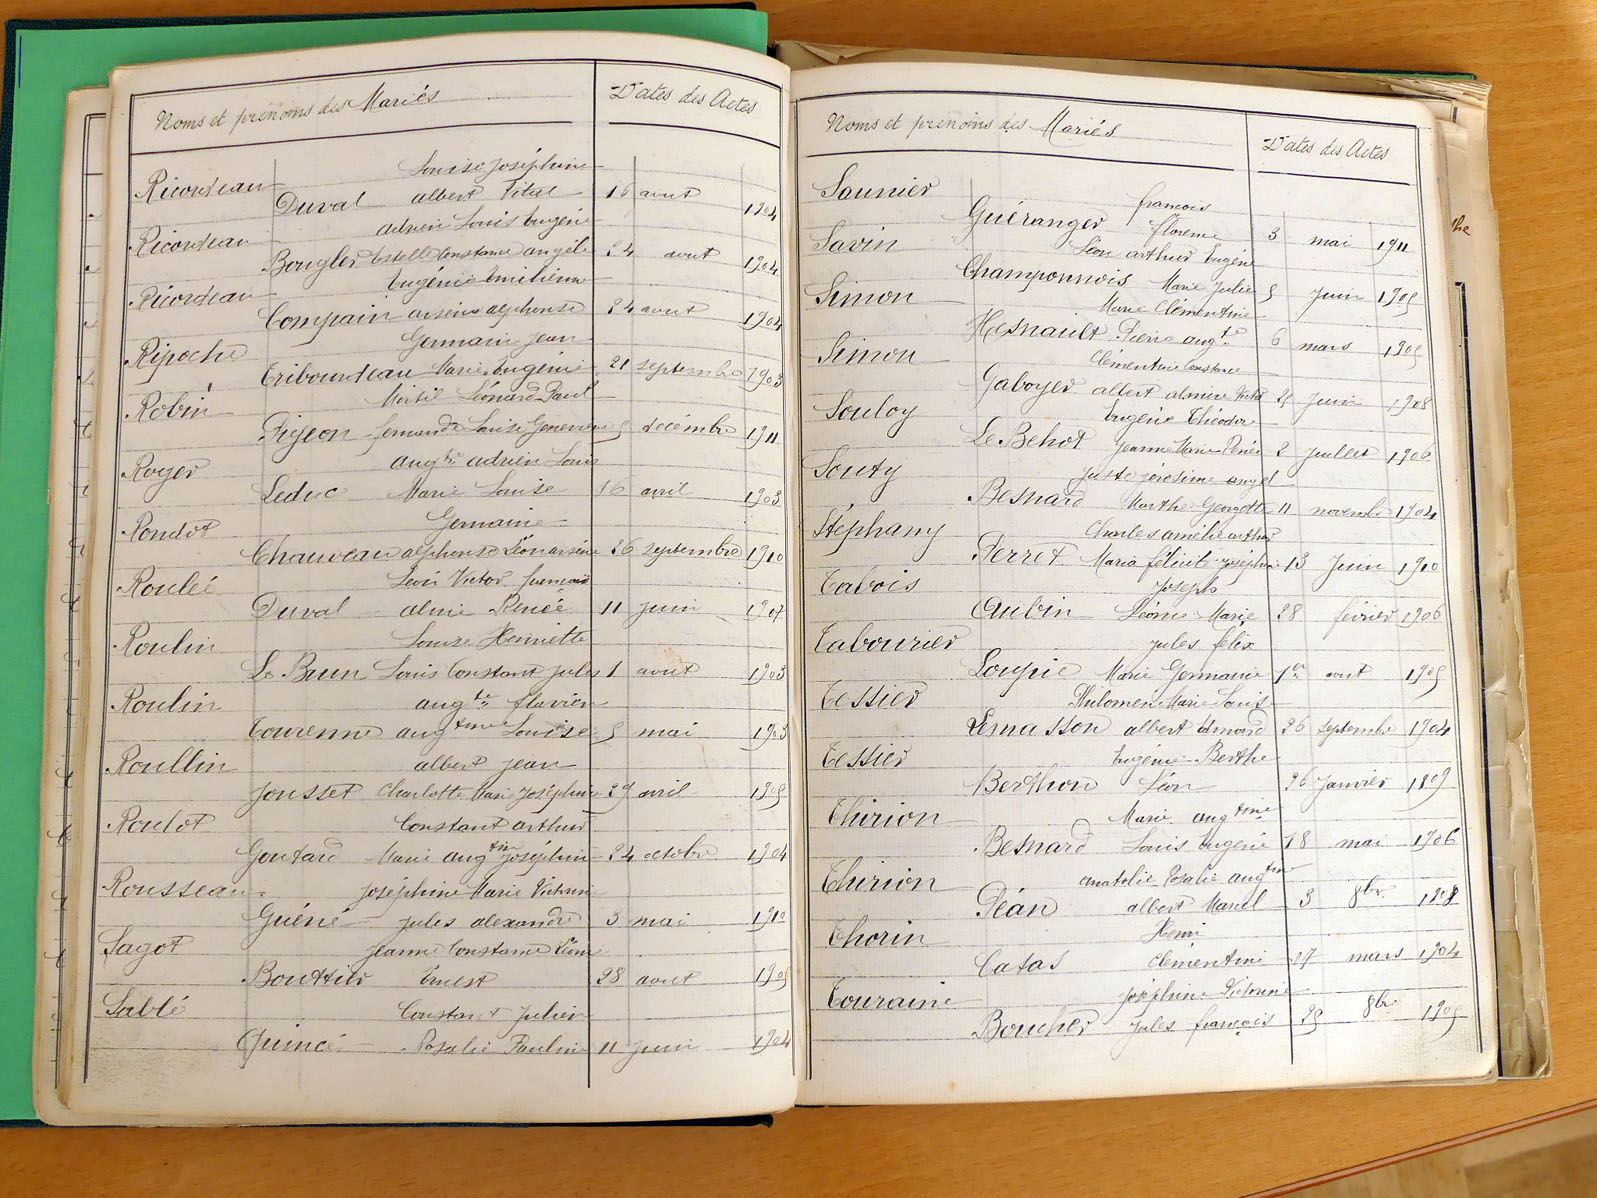 Noms et prénoms des Mariés Dates des Actes
Louise Joséphine
Ricordeau
Duval albert Vital 16 aout 1904
adrien Louis Eugène
Ricordeau
Bougler Estelle Constance angèle 24 aout 1904
Eugénie Emilienne
Ricordeau
Compain arsène alphonse 24 aout 1904
Germain Jean
Ripoche
Tribourdeau Marie Eugénie 21 septembre 1903
Mirtil Léonard Paul
Robin
Pigeon fernande Louise Geneviève 5 décembre 1911
augte adrien Louis
Royer
Leduc Marie Louise 16 avril 1903
Germaine
Rondot
Chauveau alphonse Léon arsène 26 septembre 1910
Léon Victor francois
Roulée
Duval aline Renée 11 juin 1907
Louise Henriette
Roulin
Le Brun Louis Constant Jules 1 aout 1903
augte flavien
Roulin
Tourenne augtine Louise 5 mai 1903
albert jean
Roullin
Jousset Charlotte Marie Joséphine 29 avril 1905
Constant arthur
Roulot
Goutard Marie augtine Joséphine 24 octobre 1904
Joséphine Marie Victorine
Rousseau
Guéné Jules alexandre 3 mai 1910
Jeanne Constance Léonie
Sagot
Bouttier Ernest 28 aout 1905
Constant Julien
Sablé
Quincé Rosalie Pauline 11 Juin 1904
Noms et prénoms des Mariés Dates des Actes
Saunier
francois
Guéranger florence 3 mai 1911
Savin Léon arthur Eugène
Champonnois Marie Julie 5 Juin 1905
Simon Marie Clémentine
Hesnault Pierre augte 6 mars 1905
Simon Clémentine Constance
Gaboyer albert Victor 25 Juin 1908
Souloy Eugène Théodore
Le Behot Jeanne Marie Renée 2 Juillet 1906
Souty Juste angel
Besnard Marthe Georgette 11 novembre 1904
Stéphany Charles amélie arthur
Perret Maria félicité Joséphine 13 Juin 1910
Tabois Joseph
Aubin Léonie Marie 28 février 1906
Tabourier Jules félix
Loupie Marie Germaine 1er aout 1905
Tessier Philomen Marie Louis
Lemasson albert Edmond 26 septembre 1904
Tessier Eugénie Berthe
Berthon Léon 26 Janvier 1809
Thirion Marie augtine
Besnard Louis Eugène 18 mai 1906
Thirion anatolie Rosalie augtine
Péan albert Marcel 3 8bre 1908
Thorin Henri
Catas Clémentine 27 mars 1904
Touraine Joséphine Victorine
Boucher Jules françois 25 8bre 1905